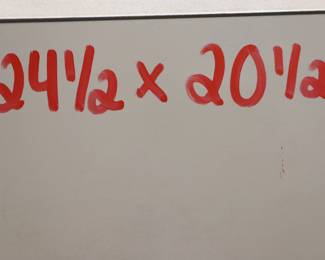 24 1/2 x 20 1/2